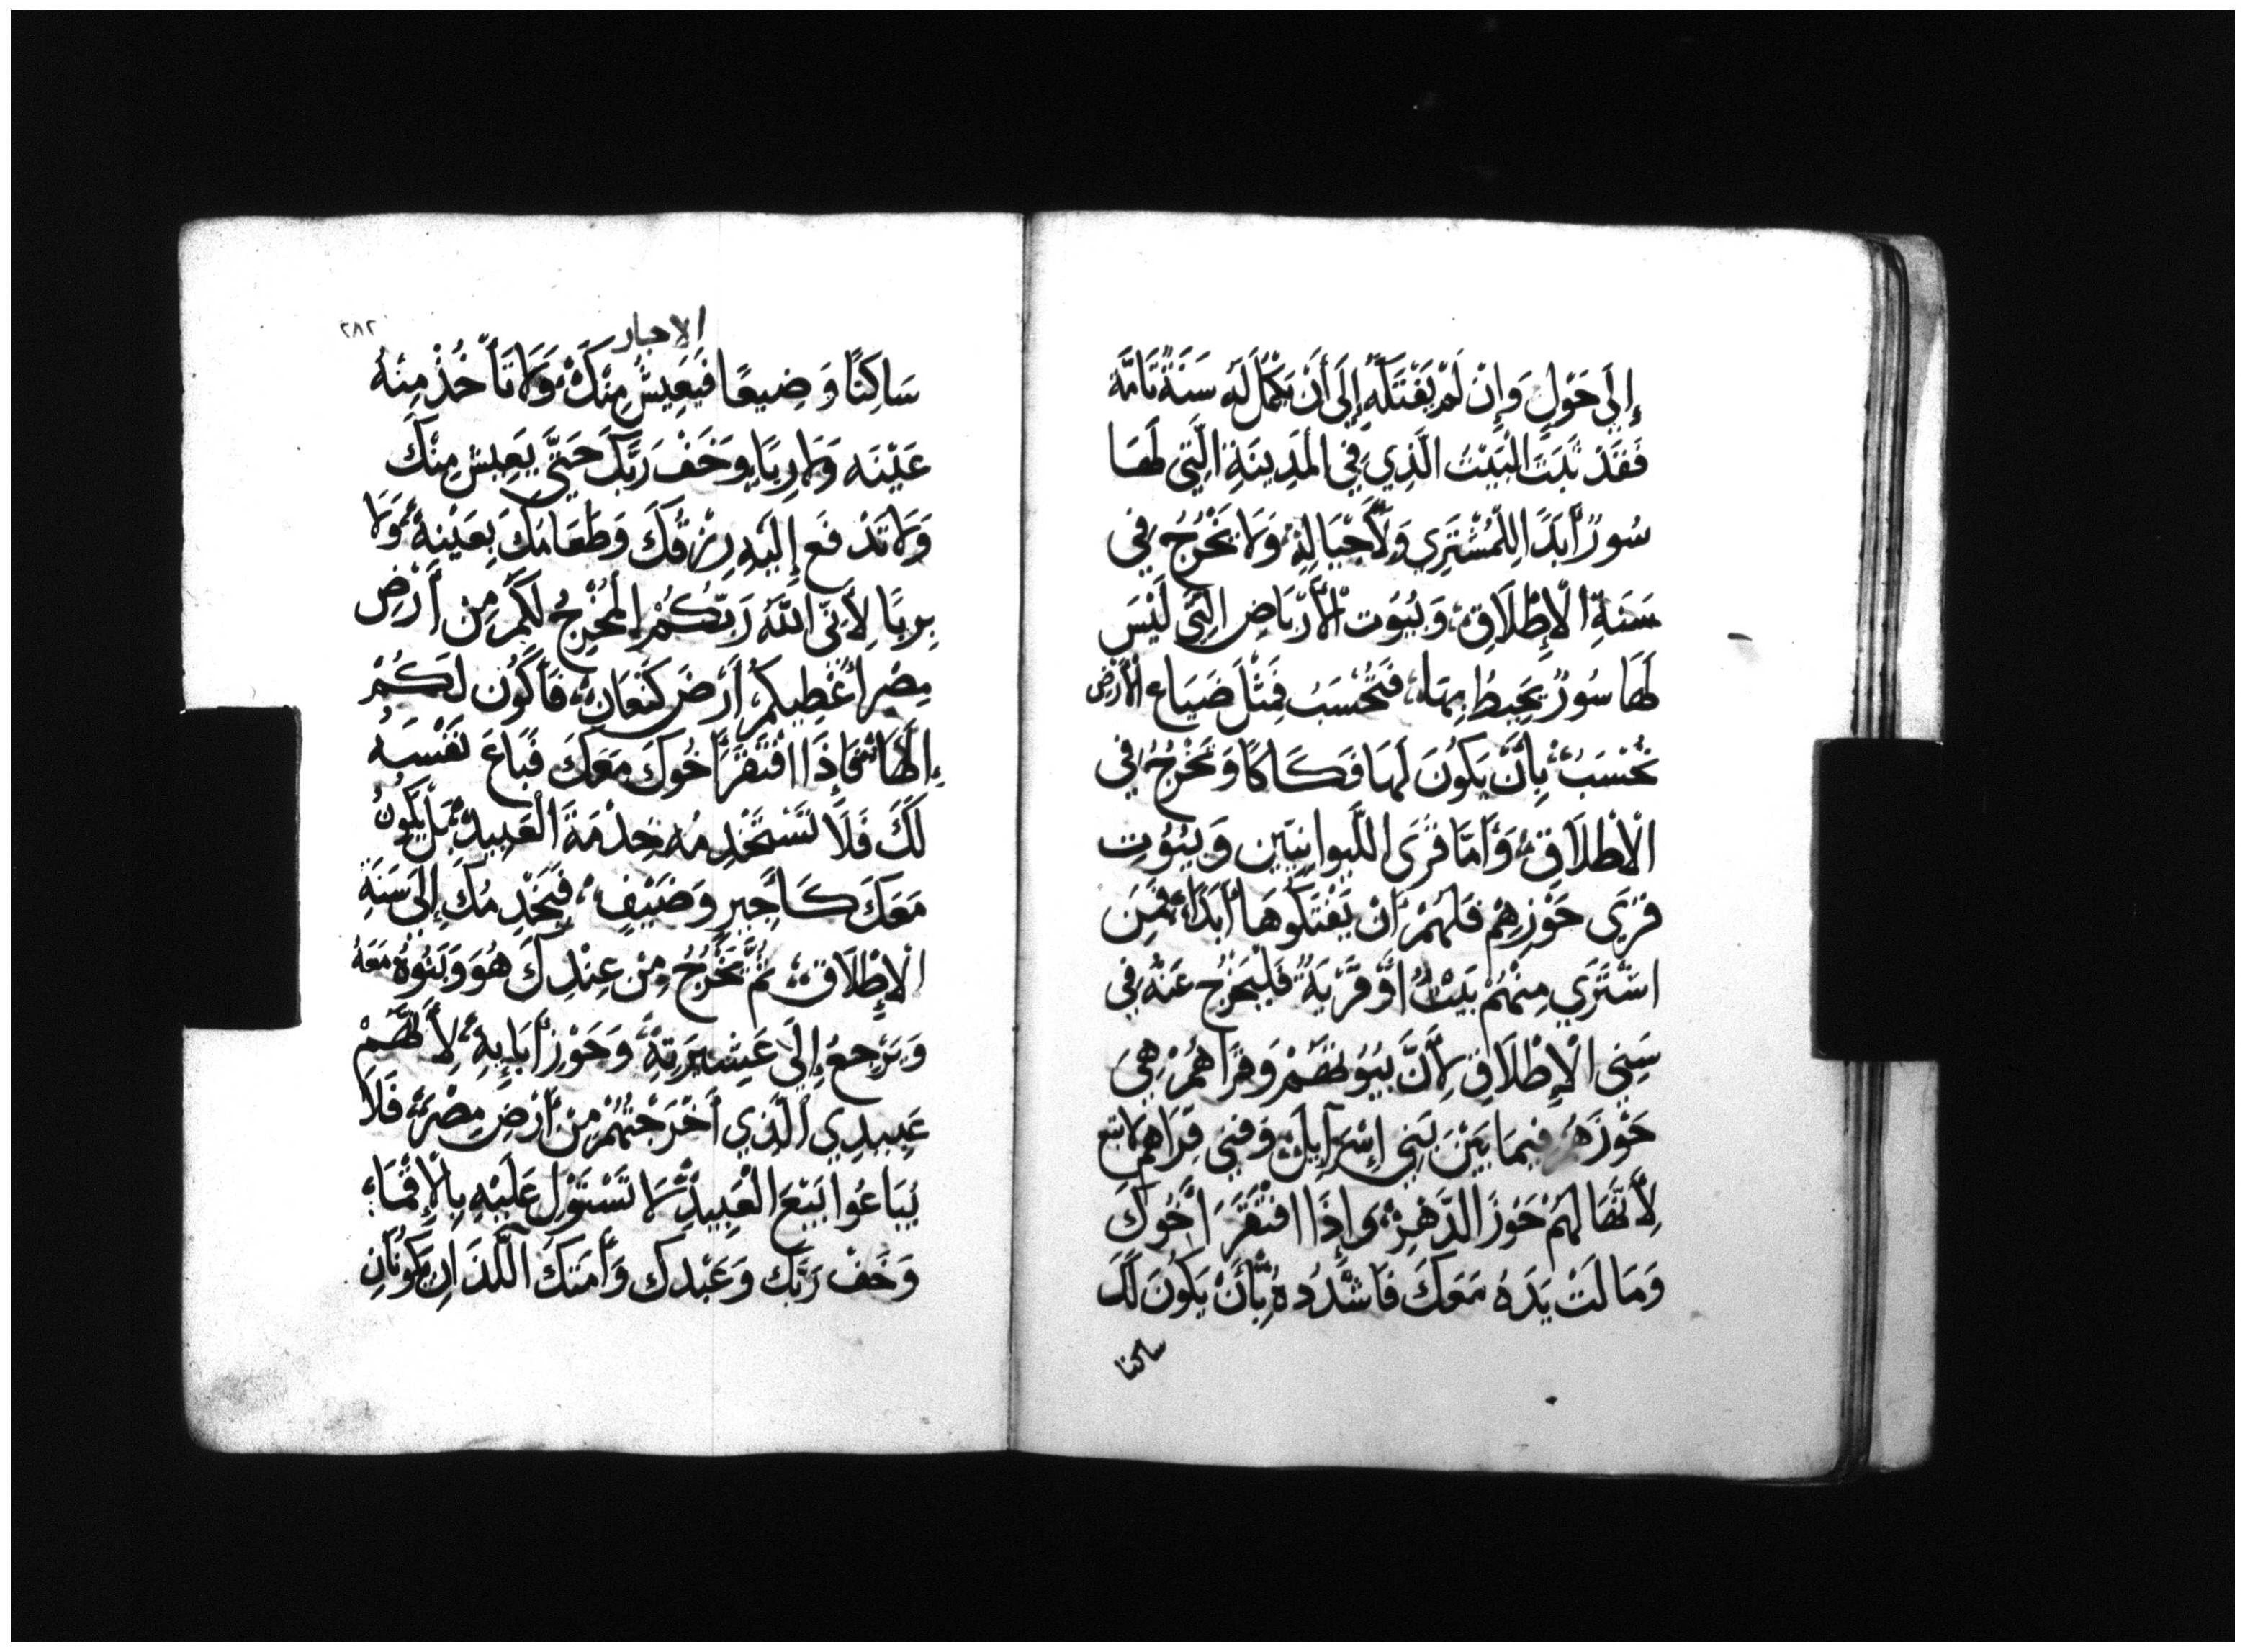 إِلَى حَوْلٍ وَإِنْ لَمْ يَفْتَكَّهُ إِلَى أَنْ يَكْمُلَ لَهُ سَنَةٌ تَامَّة
فَقَدْ ثَبَتَ الْبَيْتُ الَّذِي فِي الْمَدِينَةِ الَّتِي لَهَا
سُورٌ أَبَدًا لِلْمُشْتَرِي وَلِأَجْيَالِهِ وَلَا يَخْرُجُ فِي
سَنَةِ الْإِطْلَاقِ وَبُيُوت الْأَرْبَاضِ الَّتِي لَيْسَ
لَهَا سُورٌ يُحِيطُ بِهَا فَتُحْسَبُ مِثْلَ ضَيَاع الْأَرْض
تُحْسَبُ بِأَنْ يَكُونَ لَهَا فَكَاكًا وَتَخْرُجُ فِي
الْإِطْلَاقِ وَأَمَّا قُرَى اللِّيوانِيِّين وَبُيُوتِ
قُرَى حَوْزِهِمْ فَلَهُمْ أَنْ يَفْتَكُّوهَا أَبَدًا فَمَنِ
اشْتَرَي مِنْهُمْ بَيْتًا أَوْ قَرْيَةً فَلْيَخْرُج عَنْهُ فِي
سِنِي الْإِطْلَاقِ لِأَنَّ بُيُوتَهُمْ وَقُرَاهُمْ هِيَ
حَوْزَهُمْ فِيمَا بَيْنَ بَنِي إِسْرَآيِلَ وَفِنَي قُرَاهِم لَا تبع
لِأَنَّهَا لَهُمْ حَوْزَ الدَّهْرِ وَإِذَا افْتَقَرَ أَخُوكَ
وَمَالَتْ يَدَهُ مَعَكَ فَاشْدُدهُ بِأَنْ يَكُونَ لَكَ
ساكنا
الاحبار
٢٨٢
سَاكِنًا وَضِيعًا فَيَعِيشُ مِنْكَ وَلَا تَأْخُذْ مِنْهُ
عَيْنَه وَلَا رِبَا وَخَفْ رَبَّكَ حَتَّى يَعِيش مِنْكَ
وَلَا تَدْفَع إِلَيْهِ رِزْقَكَ وَطَعَامَكَ بِعَيْنِهِ وَلَا
بِرِبًا لِأَنِّي اللَّهُ رَبُّكُمْ الْمُخْرِجُ لَكُمْ مِن أَرْضِ
مِصْر أُعْطِيكُمْ أَرْضَ كَنْعَانِ فَأَكُون لَكُمْ
إِلَهًا فَإِذَا افْتَقَرَ أَخُوكَ مَعَكَ فَبَاعَ نَفْسَهُ
لَكَ فَلَا تَسْتَخْدِمهُ خِدْمَةَ الْعَبِيدِ بَلْ يَكُونُ
مَعَكَ كَأَجِيرٍ وَضَيْفٍ فَيَخْدِمُكَ إِلَى سَنَةِ
الْإِطْلَاق ثُمَّ يَخْرُجُ مِنْ عِنْدِكَ هُوَ وَبَنُوهُ مَعَهُ
وَيَرْجِعُ إِلَى عَشِيرَتِهِ وَحَوْزِ أَبَايِهِ لِأَنَّهُمْ
عَبِيدِي الَّذِي أَخْرَجْتُهُمْ مِنْ أَرْضِ مِصْرَ فَلَا
يُبَاعُوا بَيْعَ الْعَبِيدِ لَا تَسْتَوْلِ عَلَيْهِ بِالْإِقْمَاءِ
وَخَفْ رَبَّكَ وَعَبْدكَ وَأَمَتكَ اللَّذَانِ يَكُونَانِ